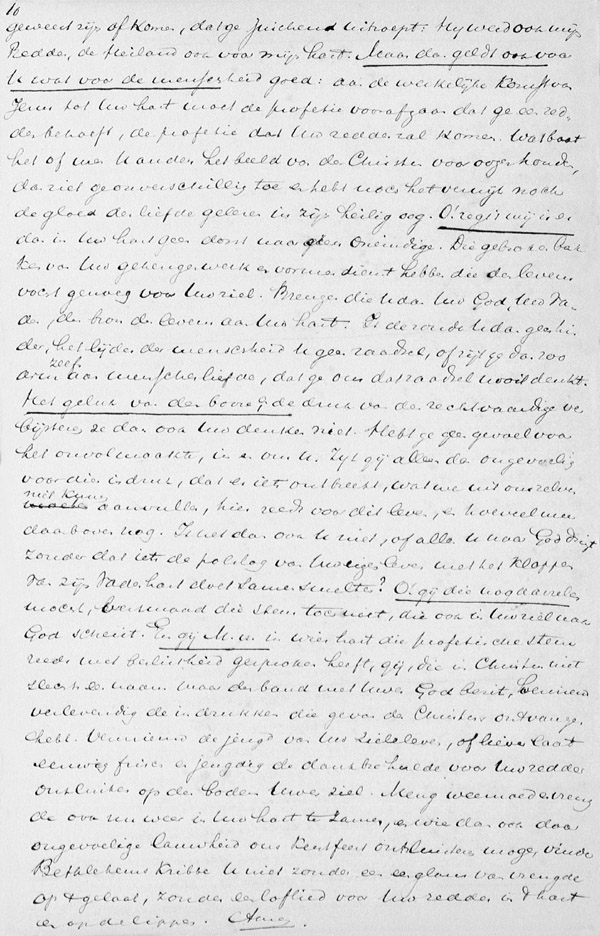 10
geweest zijn of komen, dat ge juichend uitroept: Hij werd ook mijn
Redder, de Heiland ook voor mijn hart. Maar dan geldt ook voor
U wat voor de menscheid goed: aan de werkelijke komst van
Jezus tot Uw hart moet de profetie voorafgaan dat ge een red-
der behoeft, de profetie dat Uw redder zal komen. Wat baat
het of men U anders het beeld van den Christus voor oogen houdt,
dan ziet ge onverschillig toe en hebt noch het verwijt noch
de gloed der liefde gelezen in zijn heilig oog. O! zegt mij is er
dan in Uw hart geen dorst naar den Oneindige. Die gebroken bak
ken van Uw eigen werk en vormendienst hebben die den levens
vocht genoeg voor Uw ziel. Brengen die U dan Uw God, Uw Va-
der, den bron des levens aan Uw hart. Is de zonde U dan geen hin
der, het lijden der menscheid U geen raadsel, of zijt ge dan zoo
arm zelfs aan menschenliefde, dat ge om dat raadsel nooit denkt.
Het geluk van den booze, de druk van den rechtvaardige ver
bijsteren ze dan ook Uw denken niet. Hebt ge geen gevoel voor
het onvolmaakte, in en om U. Zijt gij alleen dan ongevoelig
voor dien indruk, dat er iets ontbreekt, wat we uit onszelven
niet kunnen aanvullen, hier reeds voor dit leven, en hoeveel meer
daarboven nog. Is het dan ook U niet, of alles U naar God dringt
zonder dat iets de polslag van Uw eigen leven met het kloppen
van zijn Vaderhart doet samensmelten? O! gij die nog daarvan
moest, versmaad die stem toch niet, die ook in Uw ziel naar
God schreit. En gij M. in wier hart die profetische stem
reeds met beslistheid gesproken heeft, gij, die in Christus niet
slechts een naam maar den band met Uwen God bezit,
verlevendig de indrukken die ge van den Christus ontvangen
hebt. Vernieuw de jeugd van Uw zieleleven, of liever laat
eeuwig frisch en jeugdig de dankbare hulde voor Uw redder
ontluiken op den bodem Uwer ziel. Meng weemoed en vreugd
de over nu weer in Uw hart te zamen, en wie dan ook door
ongevoelige lauwheid ons Kerstfeest ontluisteren moge, vinde
Bethlehems Kribbe U niet zonder een glans van vreugde
op 't gelaat, zonder een loflied voor Uw redder in 't hart
en op de lippen. Amen.